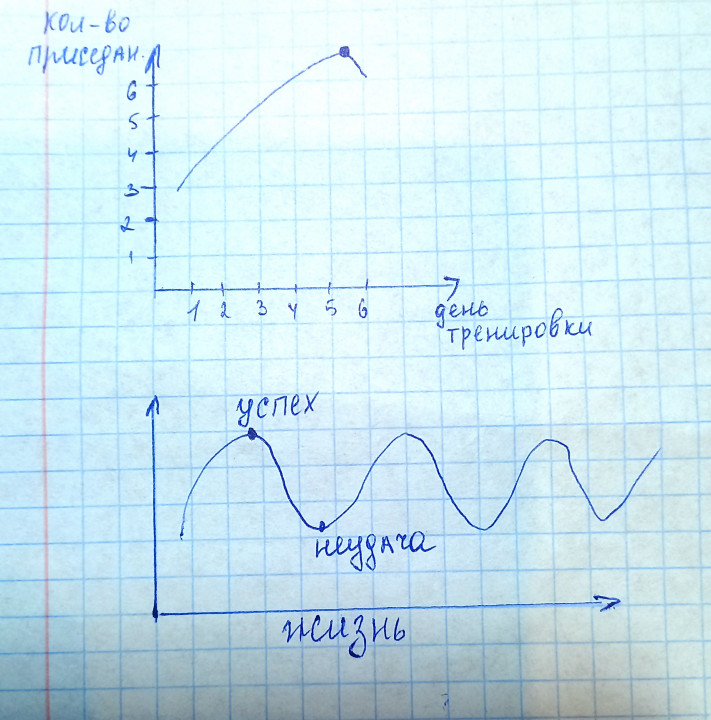 кол-во
приседан.
6
5
4
3
2
1
1 2 3 4 5 6
день
тренировки
успех
неудача
жизнь